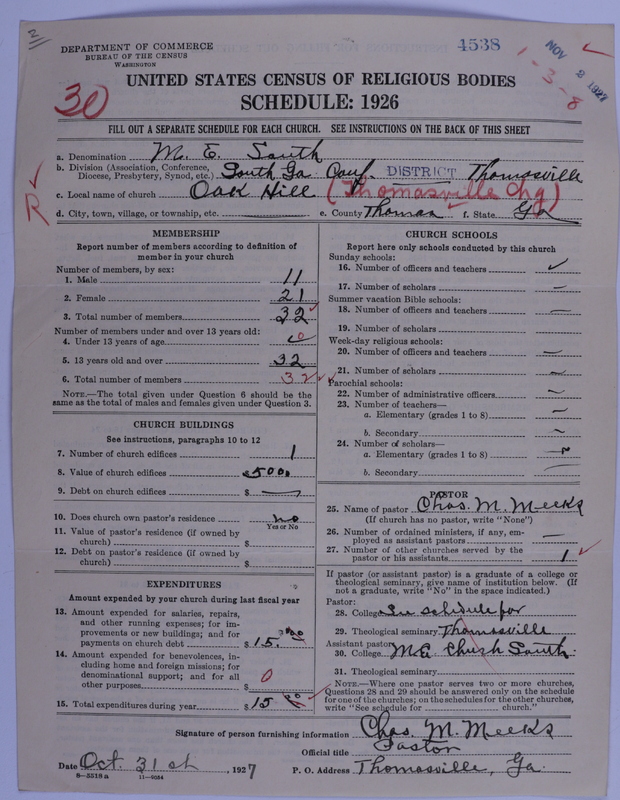 2
DEPARTMENT OF COMMERCE
BUREAU OF THE CENSUS
WASHINGTON
4538
1-3-8
NOV 2 1927
30
UNITED STATES CENSUS OF RELIGIOUS BODIES
SCHEDULE: 1926
FILL OUT A SEPARATE SCHEDULE FOR EACH CHURCH. SEE INSTRUCTIONS ON THE BACK OF THIS SHEET
a. Denomination M. E. South
b. Division (Association, Conference, Diocese, Presbytery, Synod, etc.) South Ga Conf. DISTRICT Thomasville
c. Local name of church Oak Hill (Thomasville Chg)
R
d. City, town, village, or township, etc. e. County Thomas f. State Ga
MEMBERSHIP
Report number of members according to definition of member in your church
Number of members, by sex:
1. Male 11
2. Female 21
3. Total number of members 32
Number of members under and over 13 years old:
4. Under 13 years of age 0
5. 13 years old and over 32
6. Total number of members 32
NOTE.—The total given under Question 6 should be the same as the total of males and females given under Question 3.
CHURCH BUILDINGS
See instructions, paragraphs 10 to 12
7. Number of church edifices 1
8. Value of church edifices $500.
9. Debt on church edifices $
10. Does church own pastor's residence no
Yes or No
11. Value of pastor's residence (if owned by church) $
12. Debt on pastor's residence (if owned by church) $
EXPENDITURES
Amount expended by your church during last fiscal year
13. Amount expended for salaries, repairs, and other running expenses; for improvements or new buildings; and for payments on church debt $15.00
14. Amount expended for benevolences, including home and foreign missions; for denominational support; and for all other purposes $ 0
15. Total expenditures during year $15
CHURCH SCHOOLS
Report here only schools conducted by this church
Sunday schools:
16. Number of officers and teachers
17. Number of scholars
Summer vacation Bible schools:
18. Number of officers and teachers
19. Number of scholars
Week-day religious schools:
20. Number of officers and teachers
21. Number of scholars
Parochial schools:
22. Number of administrative officers
23. Number of teachers—
a. Elementary (grades 1 to 8)
b. Secondary
24. Number of scholars—
a. Elementary (grades 1 to 8)
b. Secondary
PASTOR
25. Name of pastor Chas. M. Meeks
(If church has no pastor, write "None")
26. Number of ordained ministers, if any, employed as assistant pastors
27. Number of other churches served by the pastor or his assistants 1
If pastor (or assistant pastor) is a graduate of a college or theological seminary, give name of institution below. (If not a graduate, write "No" in the space indicated.)
Pastor:
28. College See schedule for
29. Theological seminary Thomasville
Assistant pastor:
30. College ME Church South.
31. Theological seminary
NOTE.—Where one pastor serves two or more churches, Questions 28 and 29 should be answered only on the schedule for one of the churches; on the schedules for the other churches, write "See schedule for ________ church."
Signature of person furnishing information Chas. M. Meeks
Official title Pastor
Date Oct. 31 st, 1927 P. O. Address Thomasville, Ga.
8—5518 a 11—9054